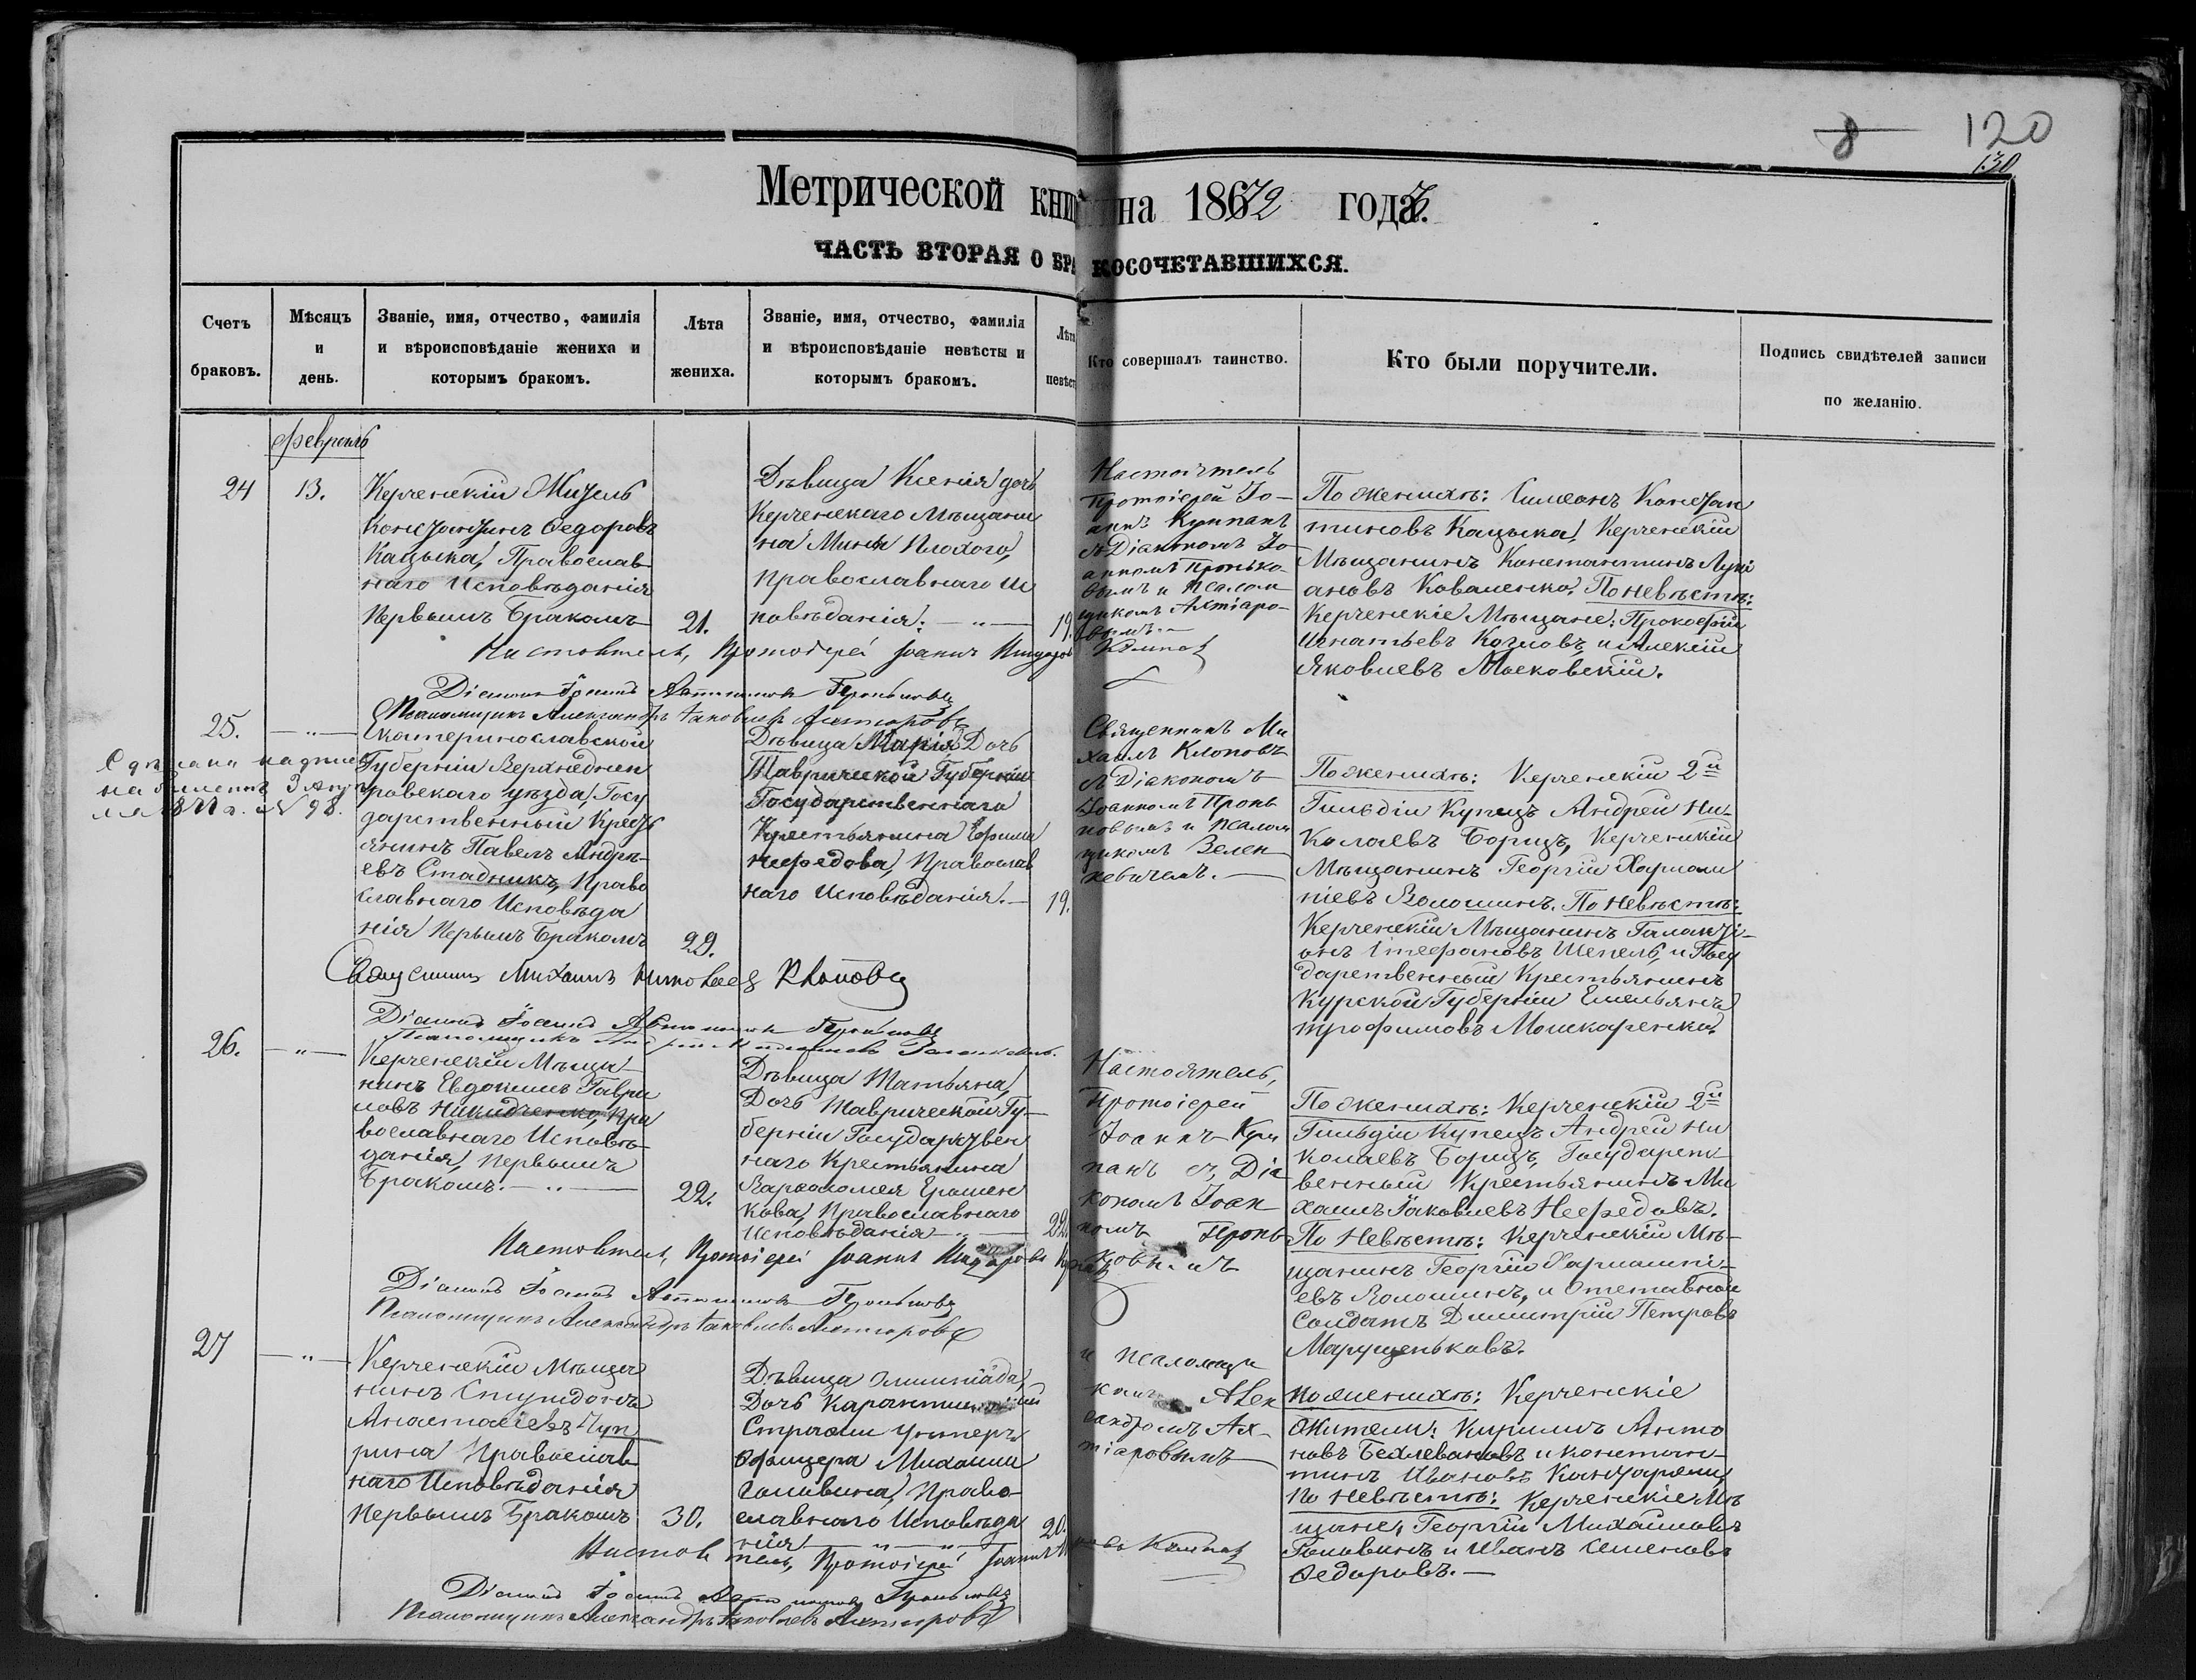 8 120
130
Метрической книг на 1872 года.
ЧАСТЬ ВТОРАЯ О БРАКОСОЧЕТАВШИХСЯ.
Счетъ браковъ.
Мѣсяцъ и день.
Званіе, имя, отчество, фамилія и вѣроисповѣданіе жениха и которымъ бракомъ.
Лѣта жениха.
Званіе, имя, отчество, фамилія и вѣроисповѣданіе невѣсты и которымъ бракомъ.
Лѣта невѣст
Кто совершалъ таинство.
Кто были поручители.
Подпись свидѣтелей записи по желанію.
Февраль
24
13.
Керченскій Житель
Константинъ Ѳедоровъ
Кацыка, Православ
наго Исповѣданія
Первымъ Бракомъ
21.
Дѣвица Ксенія дочь
Керченскаго Мѣщани
на Мины Плохого,
Православнаго Ис
повѣданія. — " —
19.
Настоятель
Протоіерей Іо-
аннъ Кумпанъ
съ Діакономъ Іо-
анномъ Пронько-
вымъ и Псалом
щикомъ Ахтіаро-
вымъ.
По женихѣ: Симеонъ Констан
тиновъ Кацыка, Керченскій
Мѣщанинъ Константинъ Луки
ановъ Коваленко. По невѣстѣ:
Керченскіе Мѣщане: Прокофій
Игнатьевъ Козловъ, и Алексій
Яковлевъ Масковскій.
Настоятель, Протоіерей Іоаннъ
Діаконъ Іоаннъ Проньковъ
Псаломщикъ Александръ Іаковлевъ Ахтіаровъ
25.
— " —
Сдѣлана надпись
на билетѣ 3 Апр
№ 98.
Екатеринославской
Губерніи Верхнеднеп
ровскаго уѣзда, Госу
дарственный Кресть
янинъ Павелъ Андре-
евъ Стадникъ, Право
славнаго Исповѣда
нія Первымъ Бракомъ
29.
Дѣвица Марія Дочь
Таврической Губерніи
Государственнаго
Крестьянина Ефима
Нефедова, Православ
наго Исповѣданія. —
19.
Священникъ Ми
хаилъ Клоповъ
съ Діакономъ
Іоанномъ Пронь
ковымъ и Псалом
щикомъ Зелен
кевичемъ. —
По женихѣ: Керченскій 2й
Гильдіи Купецъ Андрей Ни-
колаевъ Борицъ, Керченскій
Мѣщанинъ Георгій Харлам
піевъ Волошинъ. По невѣстѣ:
Керченскій Мѣщанинъ Галакті-
онъ Стефановъ Шепель, и Госу
дарственный Крестьянинъ
Курской Губерніи Емельянъ
Трофимовъ Мошкаренко.
Священникъ Михаилъ Клоповъ
Діаконъ Іоаннъ Проньковъ
Псаломщикъ
26.
— " —
Керченскій Мѣща-
нинъ Евдокимъ Гаври
ловъ Никидченко, Пра
вославнаго Исповѣ-
данія, Первымъ
Бракомъ. — " —
22.
Дѣвица Татьяна,
Дочь Таврической Гу-
берніи Государствен
наго Крестьянина
Варѳоломея Ерошен
кова, Православнаго
Исповѣданія — " —
22.
Настоятель,
Протоіерей
Іоаннъ Кум
панъ съ Діа
кономъ Іоан
номъ Пронь
ковымъ
По женихѣ: Керченскій 2й
Гильдіи Купецъ Андрей Ни
колаевъ Борицъ, Государст
венный Крестьянинъ Ми
хаилъ Іаковлевъ Нефедовъ.
По Невѣстѣ: Керченскій Мѣ-
щанинъ Георгій Харлампі-
евъ Волошинъ, и Отставной
Солдатъ Димитрій Петровъ
Марущеньковъ.
Настоятель, Протоіерей Іоаннъ
Діаконъ Іоаннъ Проньковъ
Псаломщикъ Александръ Іаковлевъ Ахтіаровъ
27
— " —
Керченскій Мѣща
нинъ Спиридонъ
Анастасіевъ Чуп
рина Православ
наго Исповѣданія
Первымъ Бракомъ
30.
Дѣвица Олимпіада,
Дочь Карантинной
Стражи Унтеръ
Офицера Михаила
Головина, Право-
славнаго Исповѣда
нія — " — " —
20.
и Псаломщи
комъ Алек
сандромъ Ах-
тіаровымъ
По женихѣ: Керченскіе
Жители: Кириллъ Анто
новъ Бехлевановъ и Констан-
тинъ Ивановъ
По Невѣстѣ: Керченскіе Мѣ
щане, Георгій Михайловъ
Головинъ и Иванъ Семеновъ
Ѳедоровъ. —
Настоятель, Протоіерей Іоаннъ
Діаконъ Іоаннъ Проньковъ
Псаломщикъ Александръ Іаковлевъ Ахтіаровъ